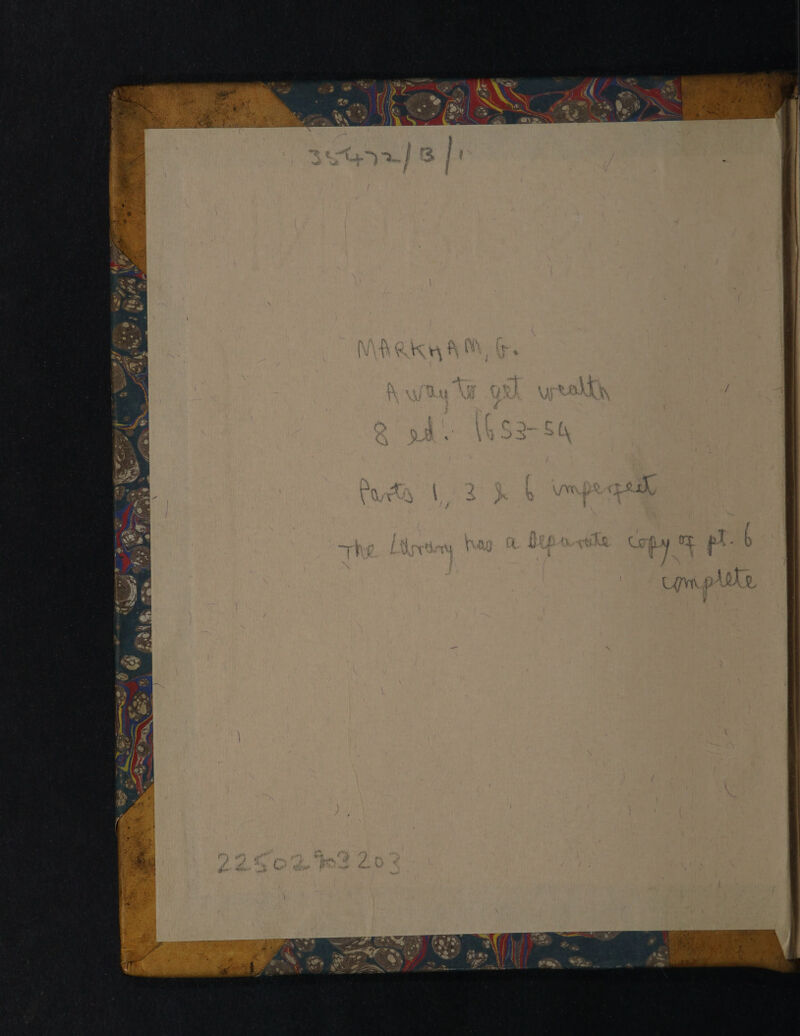 35472/B/1
MARKHAM, G.
A way to get wealth
8 ed. 1653-54
Parts 1, 3 & 6 imperfect
The Library has a separate copy of pt. 6
complete
22502903203